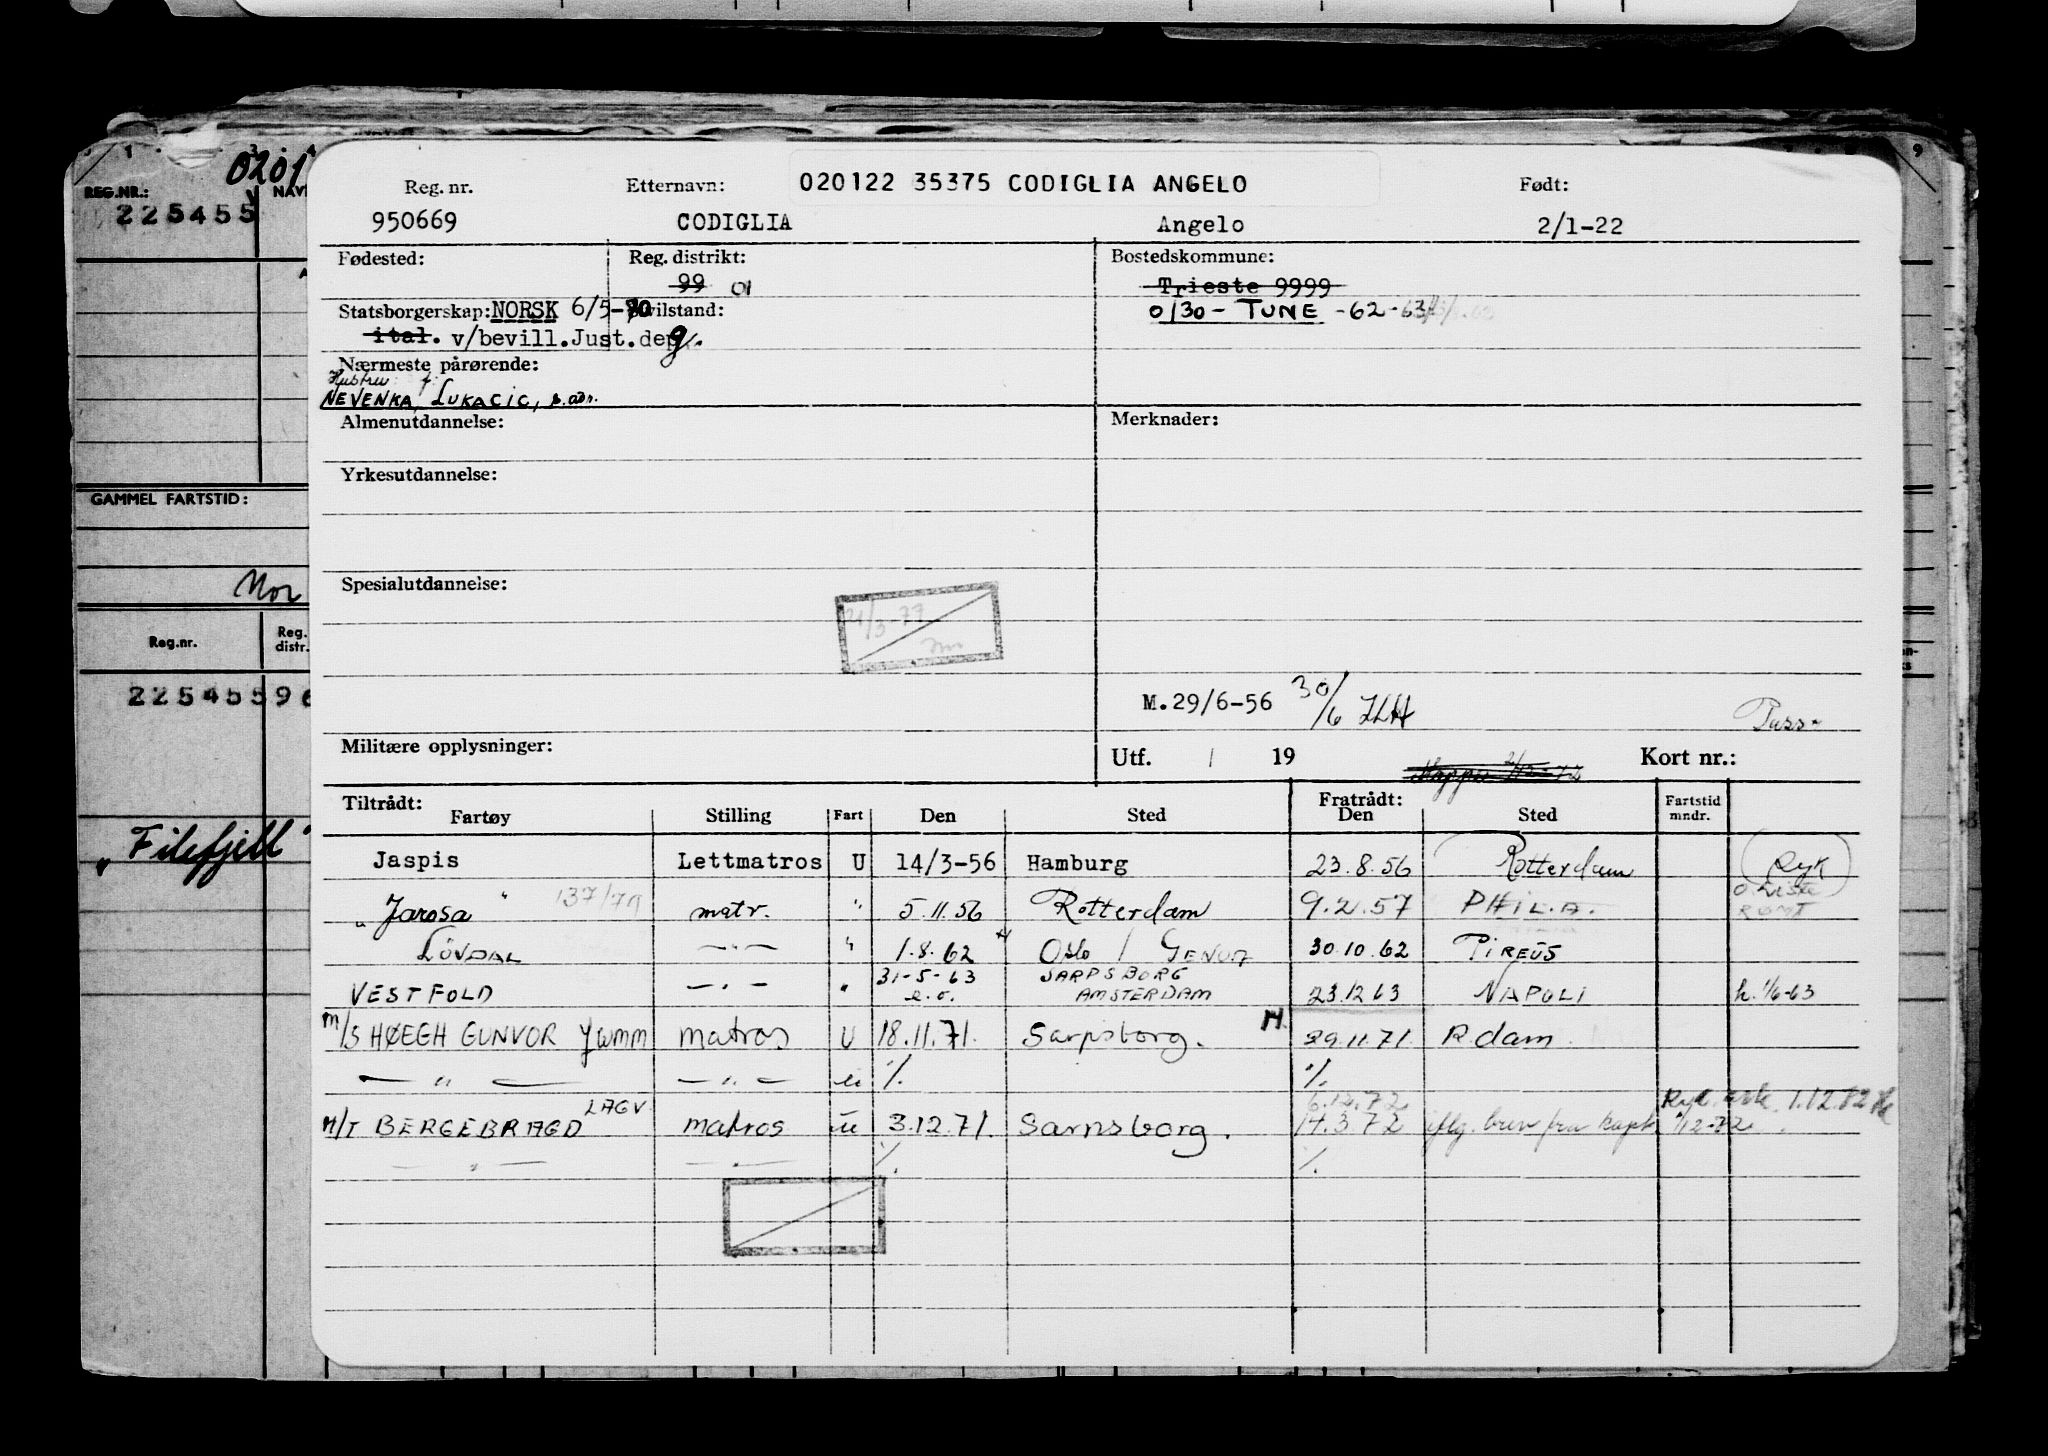 0201
REG.NR.:
225455
GAMMEL FARTSTID:
Nor
Reg.nr. Reg. distr.
225455 96
"Filefjell"
020122 35375 CODIGLIA ANGELO
Reg. nr. Etternavn: Født:
950669 CODIGLIA Angelo 2/1-22
Fødested: Reg. distrikt: Bostedskommune:
99 01 Trieste 9999
Statsborgerskap: NORSK 6/5-70 Sivilstand: 0130 - TUNE - 62-63
ital. v/bevill.Just.dep. g.
Nærmeste pårørende:
Hustru: f.
NEVENKA, LUKACIC, s. adr.
Almenutdannelse: Merknader:
Yrkesutdannelse:
Spesialutdannelse:
21/3-77
M.29/6-56 30/6 Pass
Militære opplysninger: Utf. / 19 Kort nr.:
Mappe 2/12-72
Tiltrådt: Fratrådt:
Fartøy Stilling Fart Den Sted Den Sted Fartstid mndr.
Jaspis Lettmatros U 14/3-56 Hamburg 23.8.56 Rotterdam Ryk
"Jarosa" 137/79 matr. " 5.11.56 Rotterdam 9.2.57 PHIL.A. RØMT
LÖVDAL — " — " 1.8.62 Oslo / GENUA 30.10.62 PIREUS
31-5-63 SARPSBORG
VESTFOLD — " — " e.o. AMSTERDAM 23.12.63 NAPOLI h. 1/6-63
M/S HØEGH GUNVOR matros U 18.11.71. Sarpsborg. H. 29.11.71. R.dam.
— " — — " — u % %
6.12.72 1.12.82
M/T BERGEBRAGD LAGV matros u 3.12.71. Sarpsborg. 14.3.72 iflg. brev fra kapt. 1/12-72
— " — — " — % %